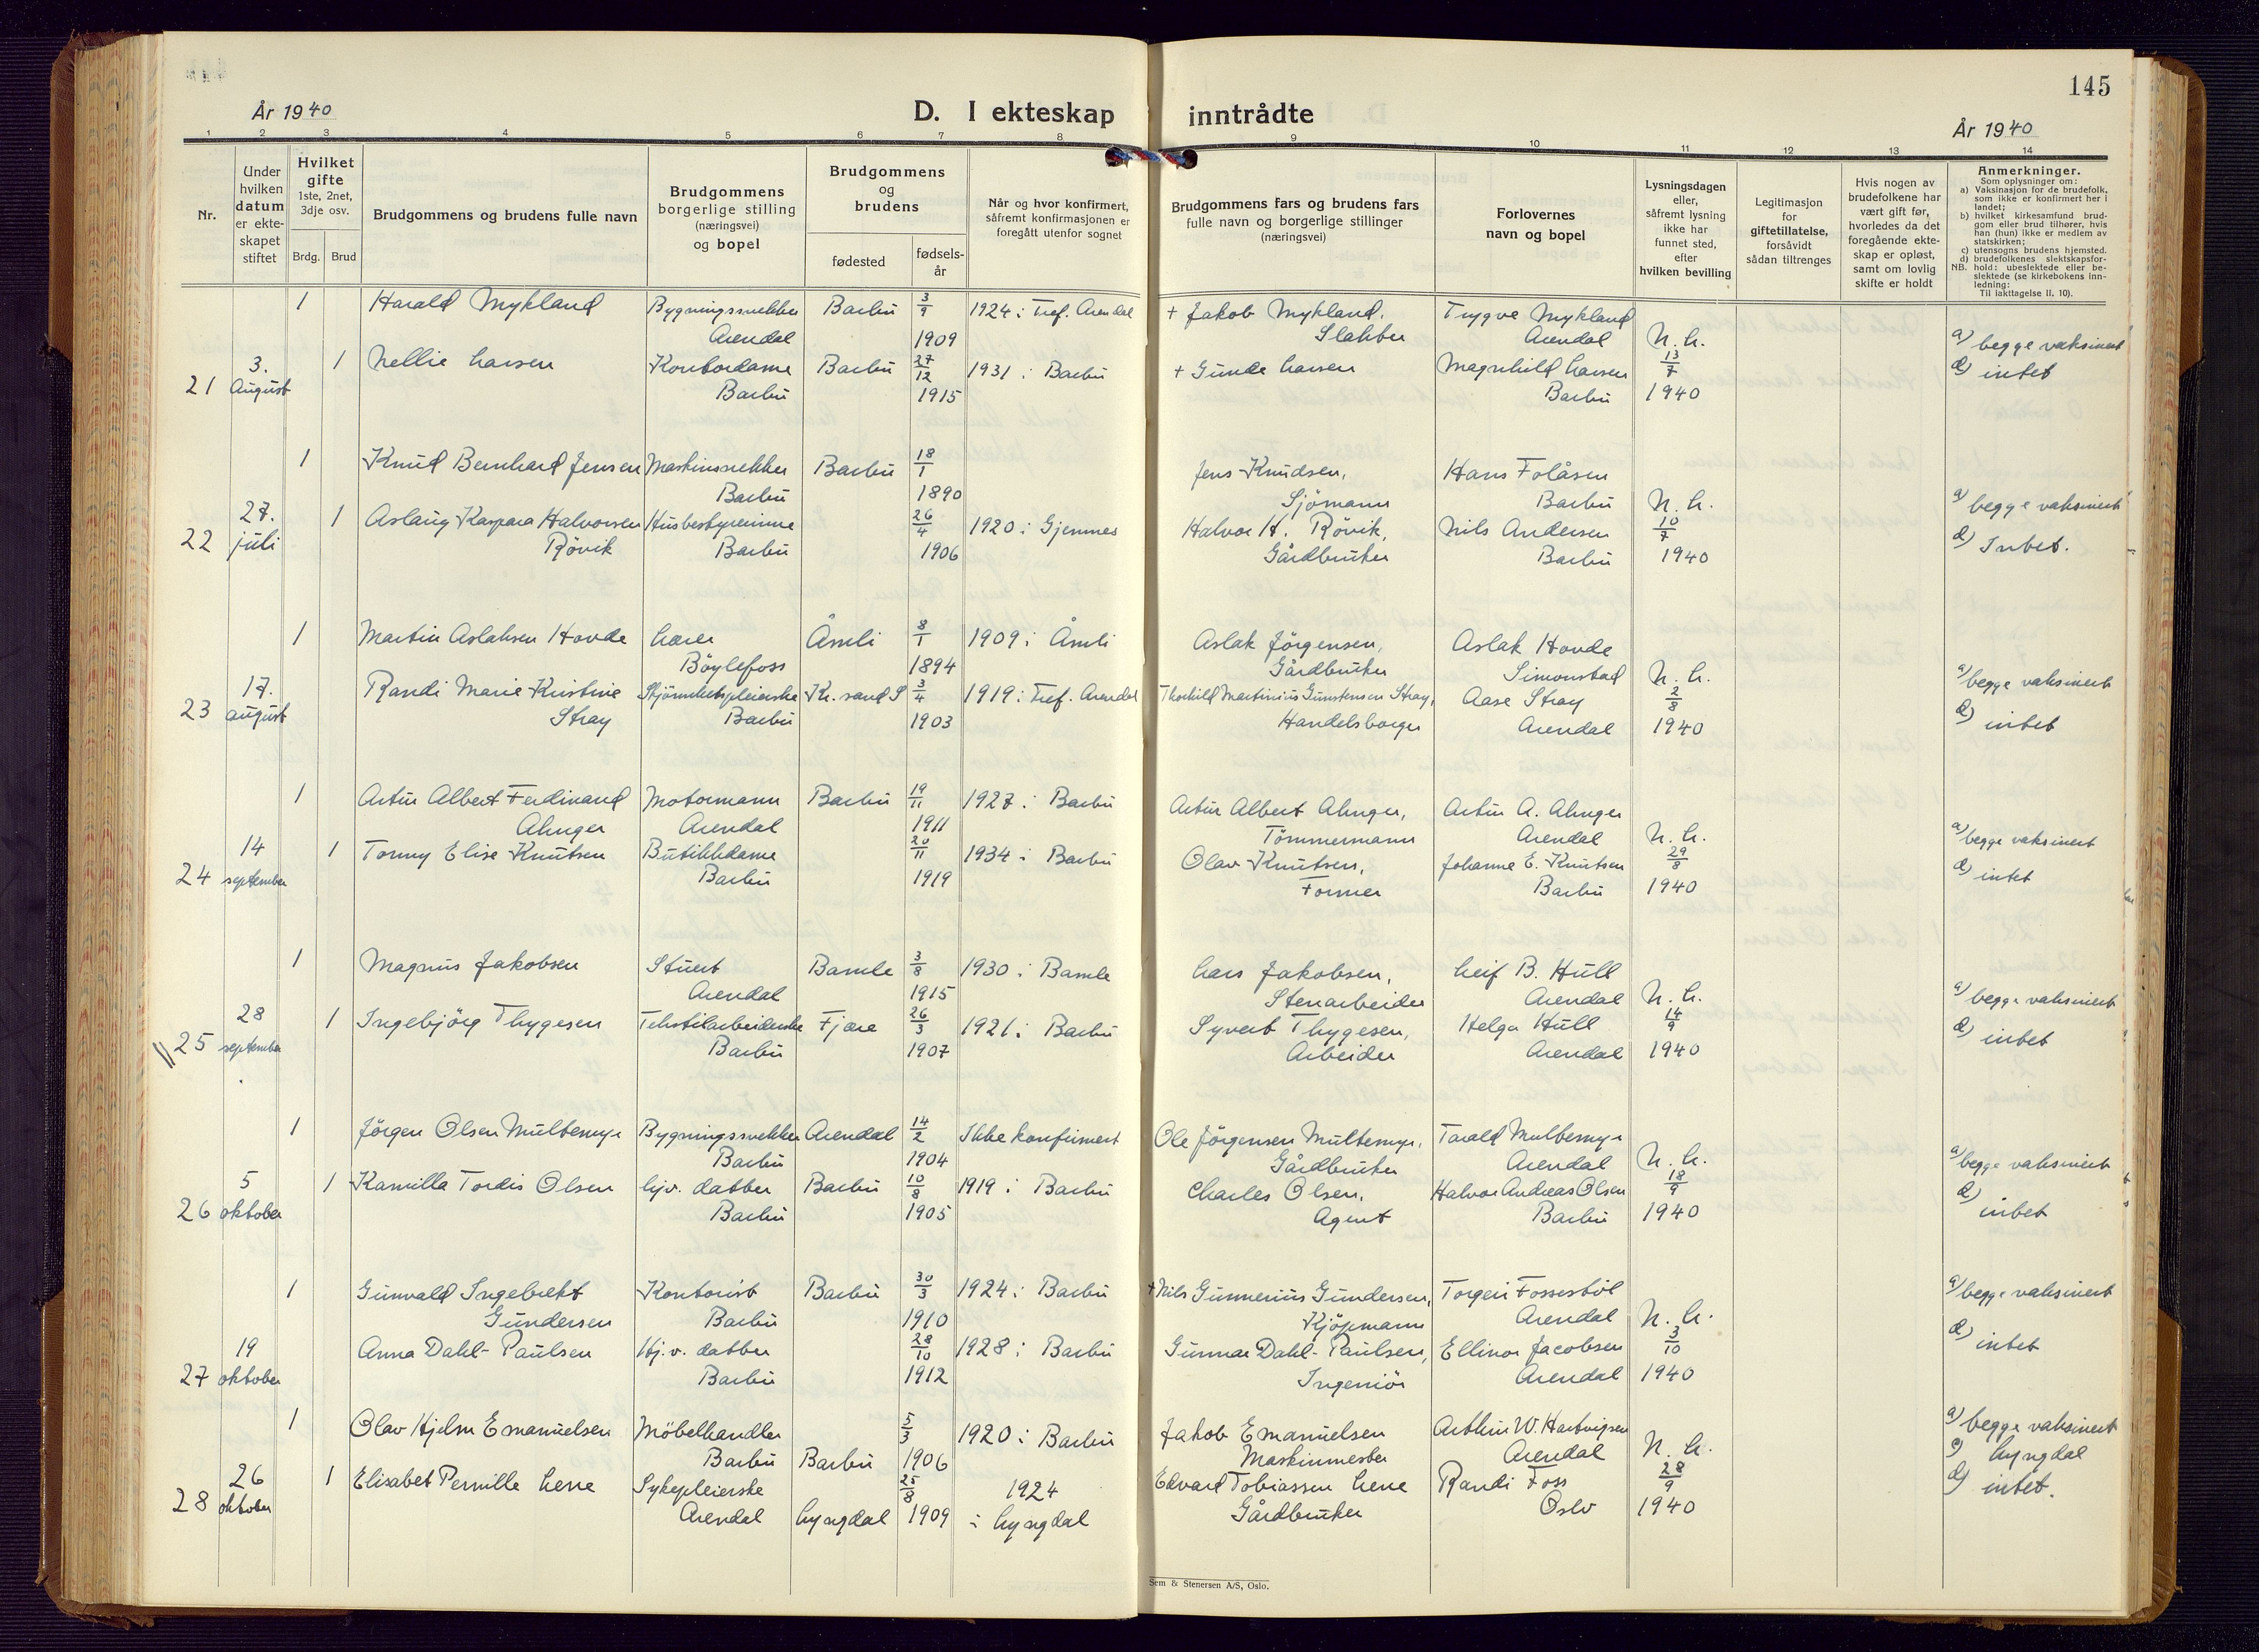 145
År 1940
D. I ekteskap inntrådte
År 1940
1 2 3 4 5 6 7 8 9 10 11 12 13 14
Nr.
Under hvilken datum er ekte-skapet stiftet
Hvilket gifte 1ste, 2net, 3dje osv.
Brdg. Brud
Brudgommens og brudens fulle navn
Brudgommens borgerlige stilling (næringsvei) og bopel
Brudgommens og brudens
fødested
fødsels-år
Når og hvor konfirmert, såfremt konfirmasjonen er foregått utenfor sognet
Brudgommens fars og brudens fars fulle navn og borgerlige stillinger (næringsvei)
Forlovernes navn og bopel
Lysningsdagen eller, såfremt lysning ikke har funnet sted, efter hvilken bevilling
Legitimasjon for giftetillatelse, forsåvidt sådan tiltrenges
Hvis nogen av brudefolkene har vært gift før, hvorledes da det foregående ekte-skap er opløst, samt om lovlig skifte er holdt
Anmerkninger.
Som oplysninger om:
a) Vaksinasjon for de brudefolk, som ikke er konfirmert her i landet;
b) hvilket kirkesamfund brud-gom eller brud tilhører, hvis han (hun) ikke er medlem av statskirken;
c) utensogns brudens hjemsted.
d) brudefolkenes slektskapsfor-hold: ubeslektede eller be-slektede (se kirkebokens inn-ledning:
NB.
Til iakttagelse II. 10).
1 Harald Mykland Bygningssnekker Barbu 3/9 1924 i Tref. Arendal + Jakob Mykland, Trygve Mykland
Arendal 1909 Slakter Arendal N. L. a) begge vaksinert
3. 1 Nellie Larsen Kontordame Barbu 27/12 1931 i Barbu + Gunde Larsen Magnhild Larsen 13/7 d) intet
21 August Barbu 1915 Barbu 1940
1 Knud Bernhard Jensen Maskinsnekker Barbu 18/1 Jens Knudsen, Hans Folåsen
Barbu 1890 Sjömann Barbu N. L. a) begge vaksinert
27. 1 Aslaug Kaspara Halvorsen Husbestyrerinne 26/4 1920 i Gjemnes Halvor H. Rövik, Nils Andersen 10/7
22 juli Rövik Barbu 1906 Gårdbruker Barbu 1940 d) Intet.
1 Martin Aslaksen Hovde Lærer Åmli 8/1 1909 i Åmli Aslak Jörgensen, Aslak Hovde
Böylefoss 1894 Gårdbruker Simonstad N. L. a) begge vaksinert
17. 1 Randi Marie Kristine Skjönnhetspleierske Kr. sand S 3/4 1919 i Tref. Arendal Thorkild Martinius Gunstensen Stray, Aase Stray 2/8
23 august Stray Barbu 1903 Handelsborger Arendal 1940 d) intet
1 Artur Albert Ferdinand Motormann Barbu 19/11 1927 i Barbu Artur Albert Alnger, Artur A. Alnger
Alnger Arendal 1911 Tömmermann Arendal N. L. a) begge vaksinert
14 1 Tonny Elise Knutsen Butikkdame 20/11 1934 i Barbu Olav Knutsen, Johanne E. Knutsen 29/8
24 september Barbu 1919 Former Barbu 1940 d) intet
1 Magnus Jakobsen Stuert Bamle 3/8 1930 i Bamle Lars Jakobsen, Leif B. Hull
Arendal 1915 Stenarbeider Arendal N. L. a) begge vaksinert
28 1 Ingebjörg Thygesen Tekstilarbeiderske Fjære 26/3 1921 i Barbu Syvert Thygesen, Helga Hull 14/9
25 september Barbu 1907 Arbeider Arendal 1940 d) intet
1 Jörgen Olsen Multemyr Bygningssnekker Arendal 14/2 Ikke konfirmert Ole Jörgensen Multemyr, Tarald Multemyr
Barbu 1904 Gårdbruker Arendal N. L. a) begge vaksinert
5 1 Kamilla Tordis Olsen hjv. datter Barbu 10/8 1919 i Barbu Charles Olsen, Halvor Andreas Olsen 18/9 d)
26 oktober Barbu 1905 Agent Barbu 1940 intet
1 Gunvald Ingebrekt Kontorist Barbu 30/3 1924 i Barbu + Nils Gunnerius Gundersen, Torgeir Fosseståt
Gundersen Barbu 1910 Kjöpmann Arendal N. L. a) begge vaksinert
19 1 Anna Dahl-Paulsen Hj. v. datter 28/10 1928 i Barbu Gunnar Dahl-Paulsen, Ellinor Jacobsen 3/10
27 oktober Barbu 1912 Ingeniör Arendal 1940 d) intet
1 Olav Hjelm Emanuelsen Möbelhandler 5/3 1920 i Barbu Jakob Emanuelsen Arthur W. Hartvigsen a) begge vaksinert
Barbu Barbu 1906 Maskinmester Arendal N. L. c) Lyngdal
26 1 Elisabet Pernille Lene Sykepleierske 25/8 1924 Edvard Tobiassen Lene Randi Foss 28/9 d) intet.
28 oktober Arendal Lyngdal 1909 i Lyngdal Gårdbruker Oslo 1940
Sem & Stenersen A/S, Oslo.